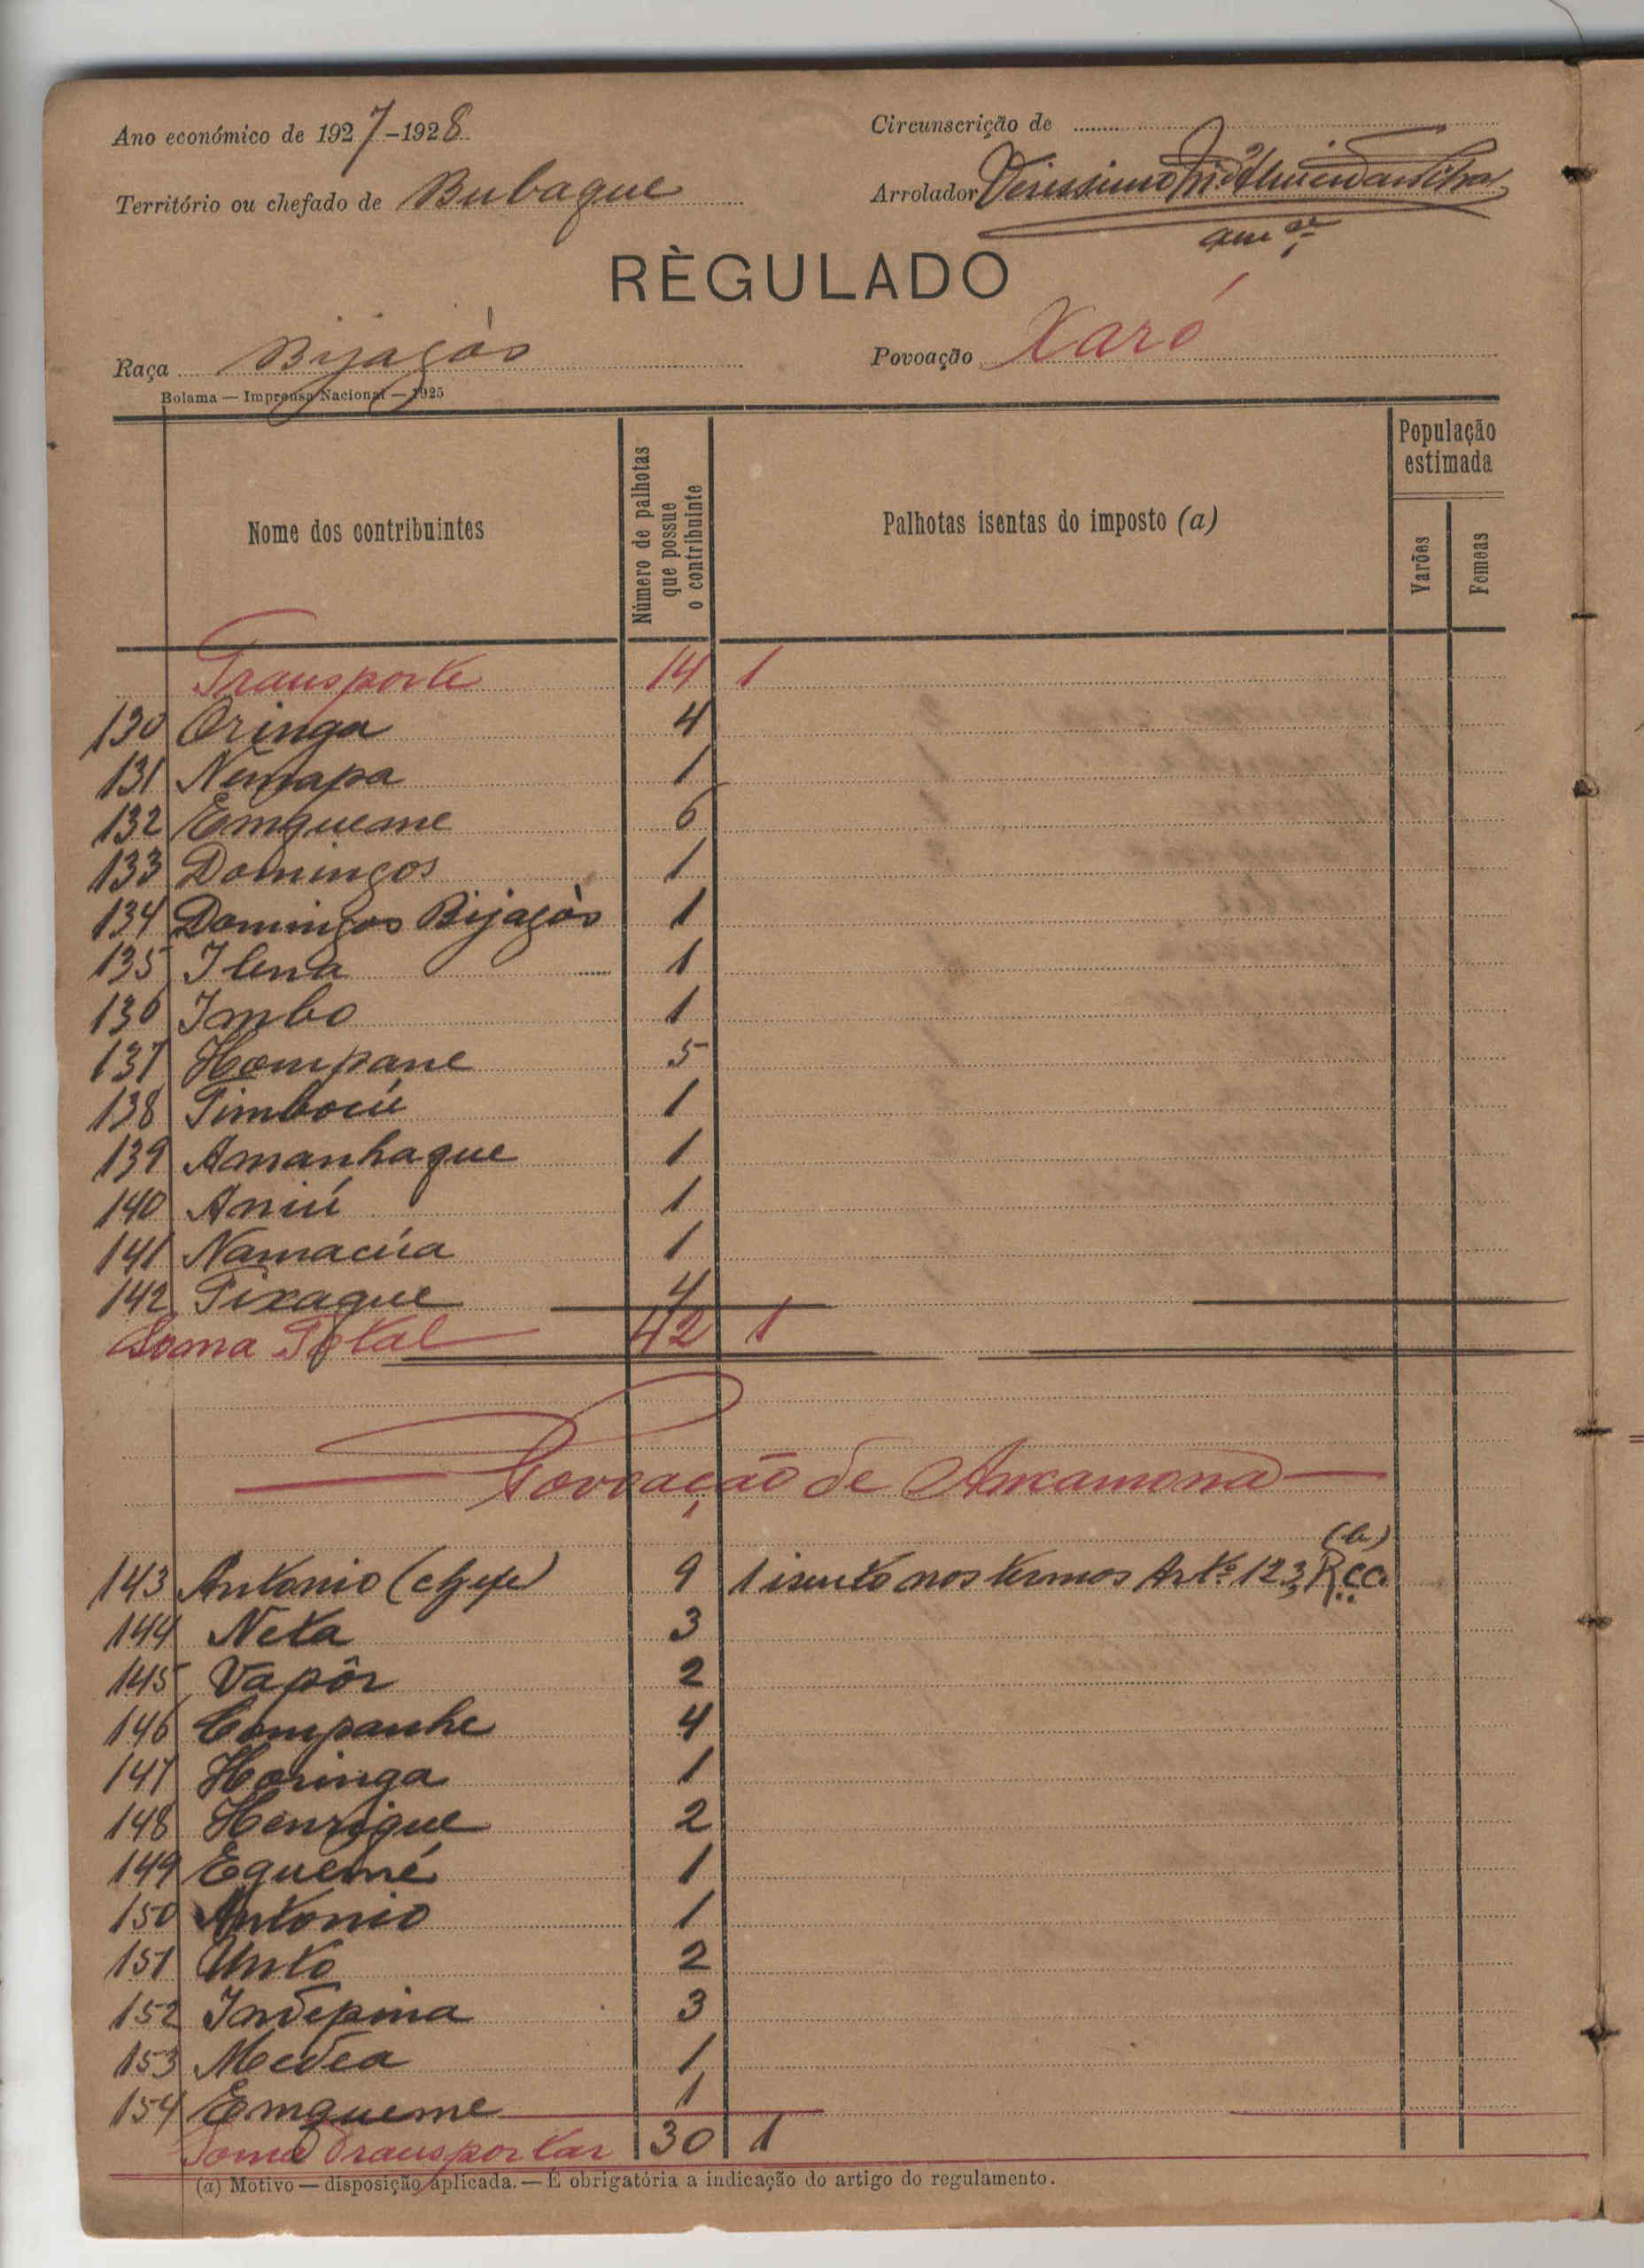 Ano económico de 1927-1928
Circunscrição de
Território ou chefado de Bubaque
Arrolador Verissimo
RÈGULADO
Raça Bijagós
Povoação Xaró
Bolama — Imprensa Nacional — 1925
Nome dos contribuintes
Número de palhotas que possue o contribuinte
Palhotas isentas do imposto (a)
População estimada
Varões
Femeas
Transporte 14 1
130 Oringa 4
131 Nemapa 1
132 Emqueme 6
133 Domingos 1
134 Domingos Bijagós 1
135 Ilena 1
136 Imbo 1
137 Hompane 5
138 Timbocú 1
139 Amanhaque 1
140 Aniú 1
141 Namacúa 1
142 Tixaque 4
Soma Total 42 1
Povoação de Ancamona
(b)
143 Antonio (chefe) 9 1 isento nos termos Artº 123 R.C.C.
144 Neta 3
145 Vapôr 2
146 Companhe 4
147 Horinga 1
148 Henrique 2
149 Equémé 1
150 Antonio 1
151 Unto 2
152 Indepina 3
153 Medea 1
154 Emqueme 1
Soma Transportar 30 1
(a) Motivo — disposição aplicada. — É obrigatória a indicação do artigo do regulamento.